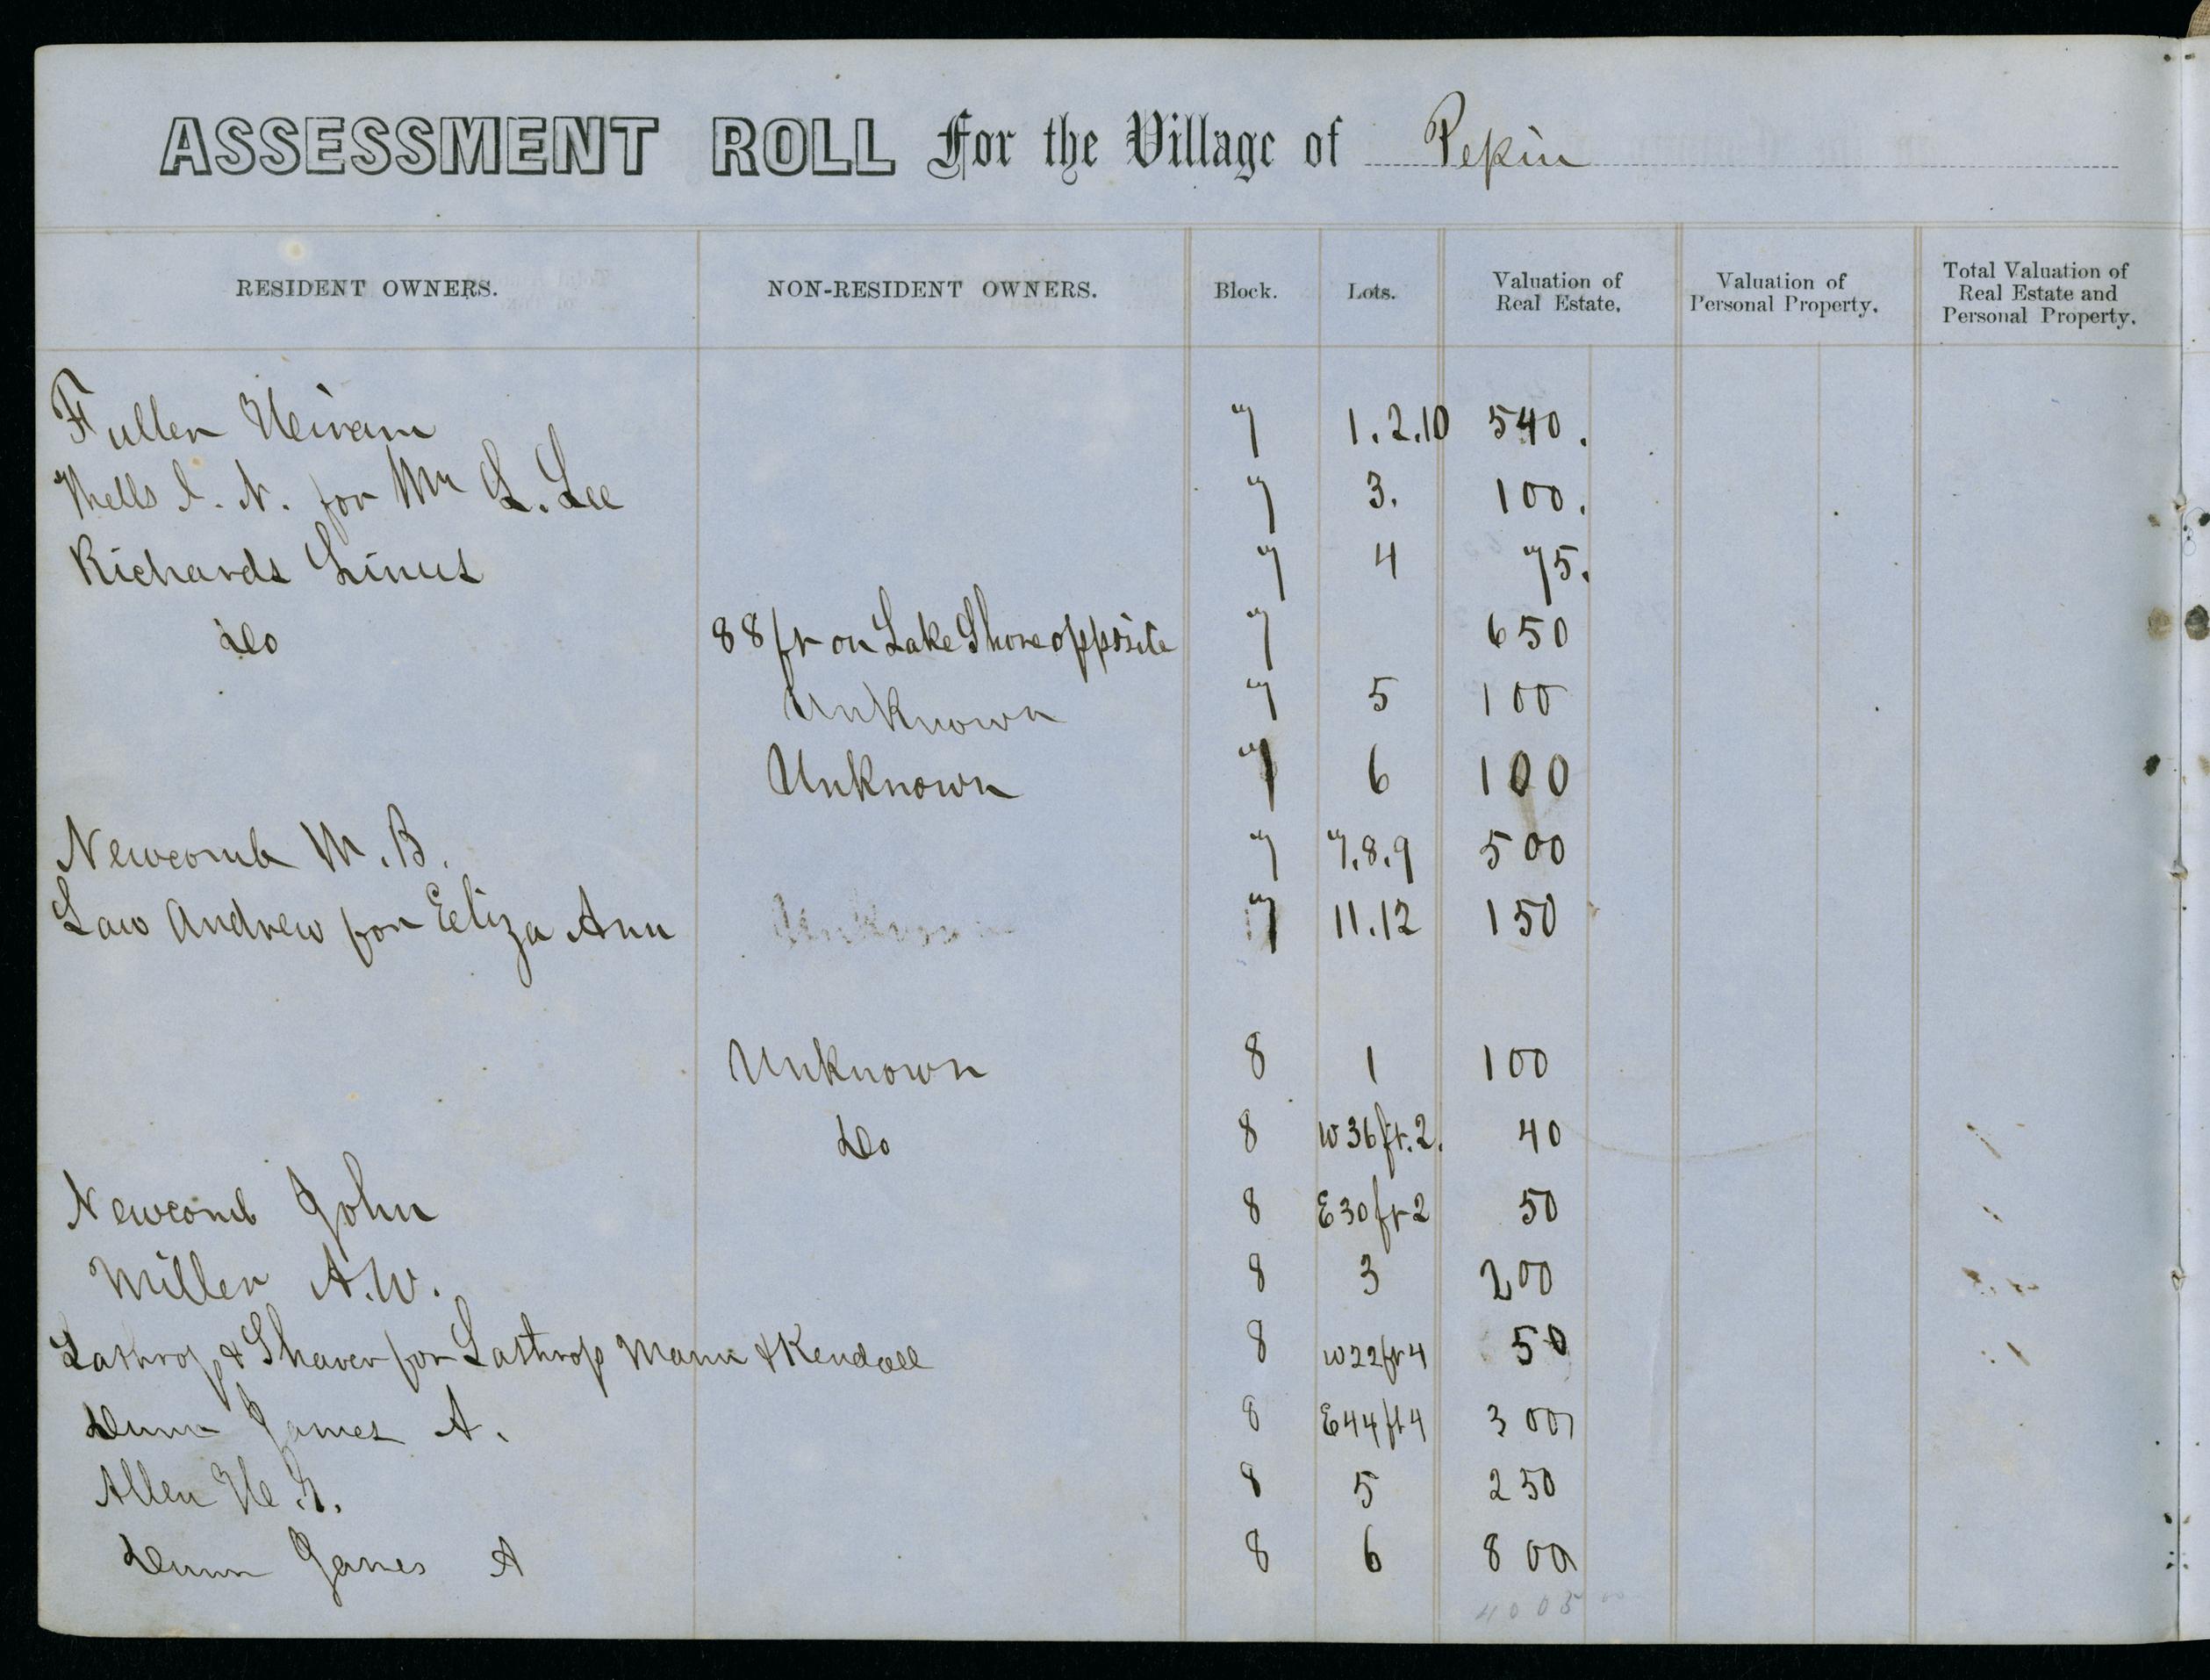 ASSESSMENT ROLL For the Village of Pepin
RESIDENT OWNERS. NON-RESIDENT OWNERS. Block. Lots. Valuation of Real Estate. Valuation of Personal Property. Total Valuation of Real Estate and Personal Property.
Fuller Hiram 7 1.2.10 540.
Wells I. N. for Mr L. Lee 7 3. 100.
Richards Linus 7 4 75.
Do 88 ft on Lake Shore opposite 7 650
Unknown 7 5 100
Unknown 7 6 100
Newcomb M. B. 7 7.8.9 500
Law Andrew for Eliza Ann Unknown 7 11.12 150
Unknown 8 1 100
Do 8 W 36 ft. 2. 40
Newcomb John 8 E 30 ft 2 50
Miller A. W. 8 3 200
Lathrop & Shaver for Lathrop Mann & Kendall 8 W 22 ft 4 50
Dunn James A. 8 E 44 ft 4 300
Allen H. 8 5 250
Dunn James A 8 6 800
4005 00